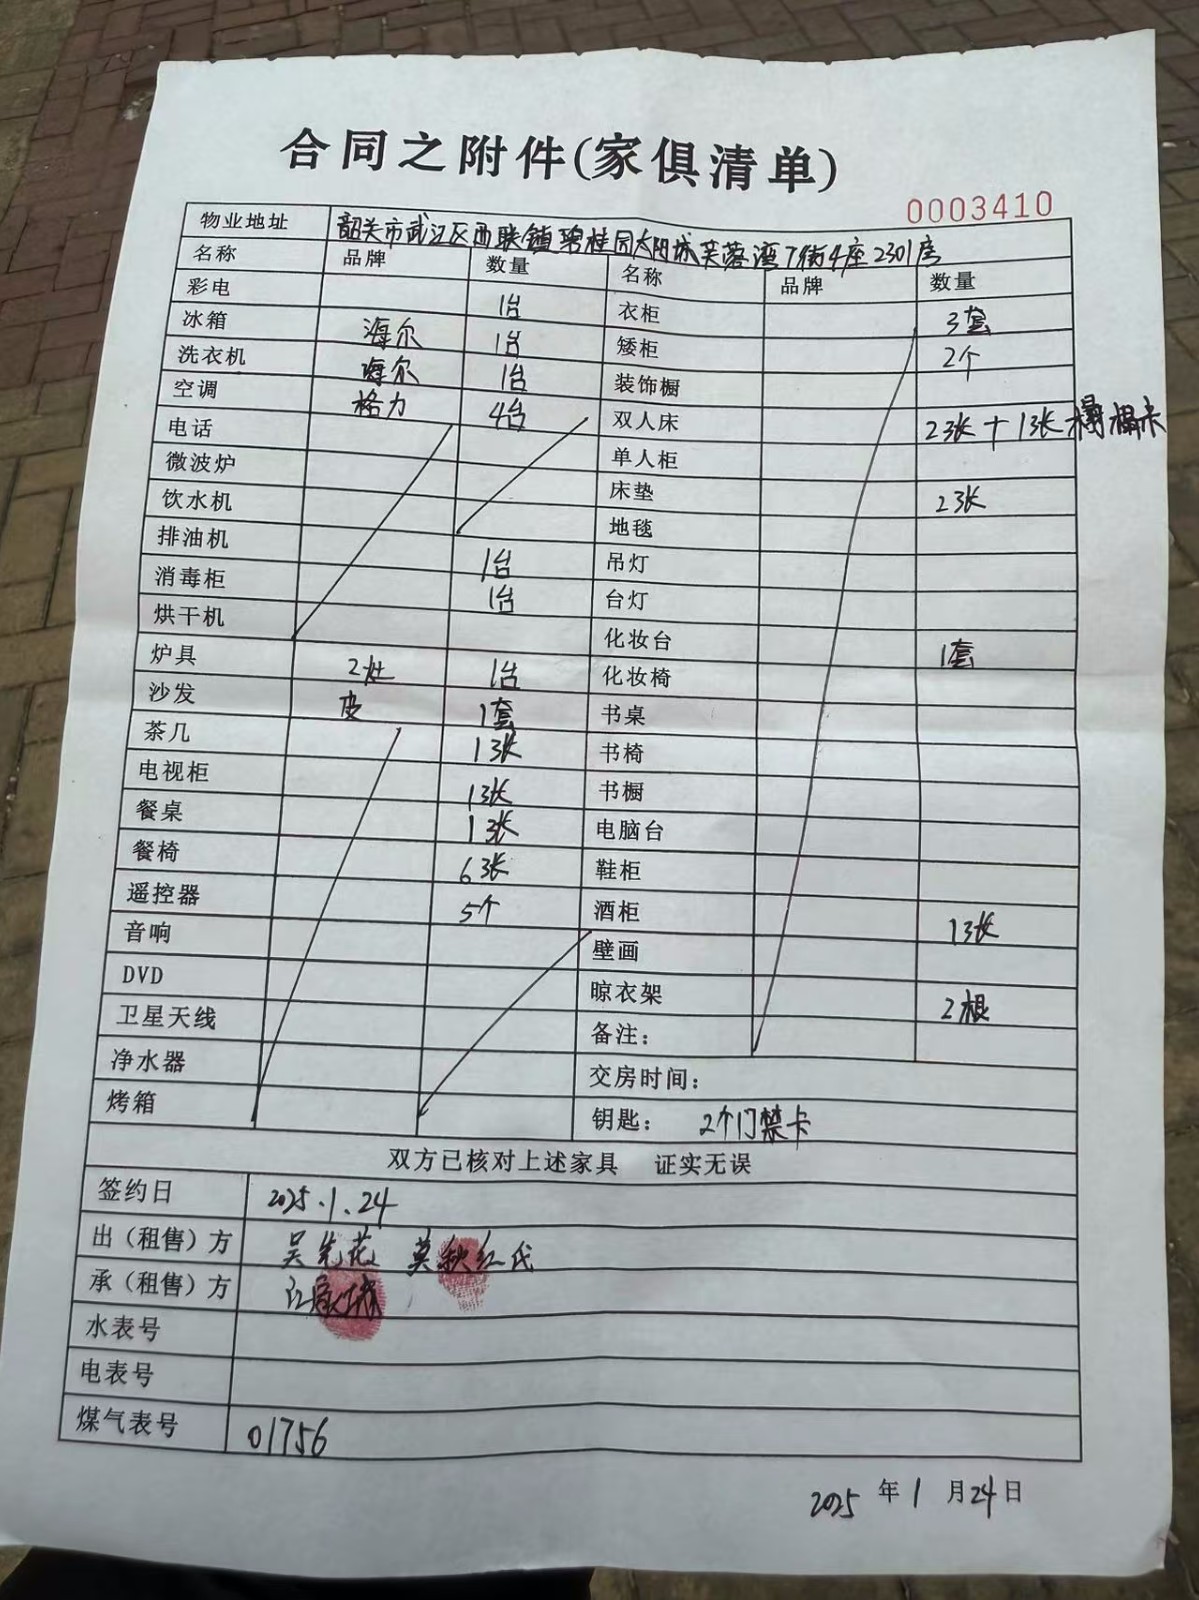 合同之附件(家俱清单)
0003410
物业地址 韶关市武江区西联镇碧桂园太阳城芙蓉湾7街4座2301房
名称 品牌 数量 名称 品牌 数量
彩电 1台 衣柜 3套
冰箱 海尔 1台 矮柜 2个
洗衣机 海尔 1台 装饰橱
空调 格力 4台 双人床 2张+1张榻榻卡
电话 单人柜
微波炉 床垫 2张
饮水机 地毯
排油机 1台 吊灯
消毒柜 1台 台灯
烘干机 化妆台 1套
炉具 2灶 1台 化妆椅
沙发 皮 1套 书桌
茶几 1张 书椅
电视柜 1张 书橱
餐桌 1张 电脑台
餐椅 6张 鞋柜
遥控器 5个 酒柜 1张
音响 壁画
DVD 晾衣架 2根
卫星天线 备注:
净水器 交房时间:
烤箱 钥匙: 2个门禁卡
双方已核对上述家具 证实无误
签约日 2025.1.24
出(租售)方 吴先花 莫秋红代
承(租售)方
水表号
电表号
煤气表号 01756
2025 年 1 月 24 日